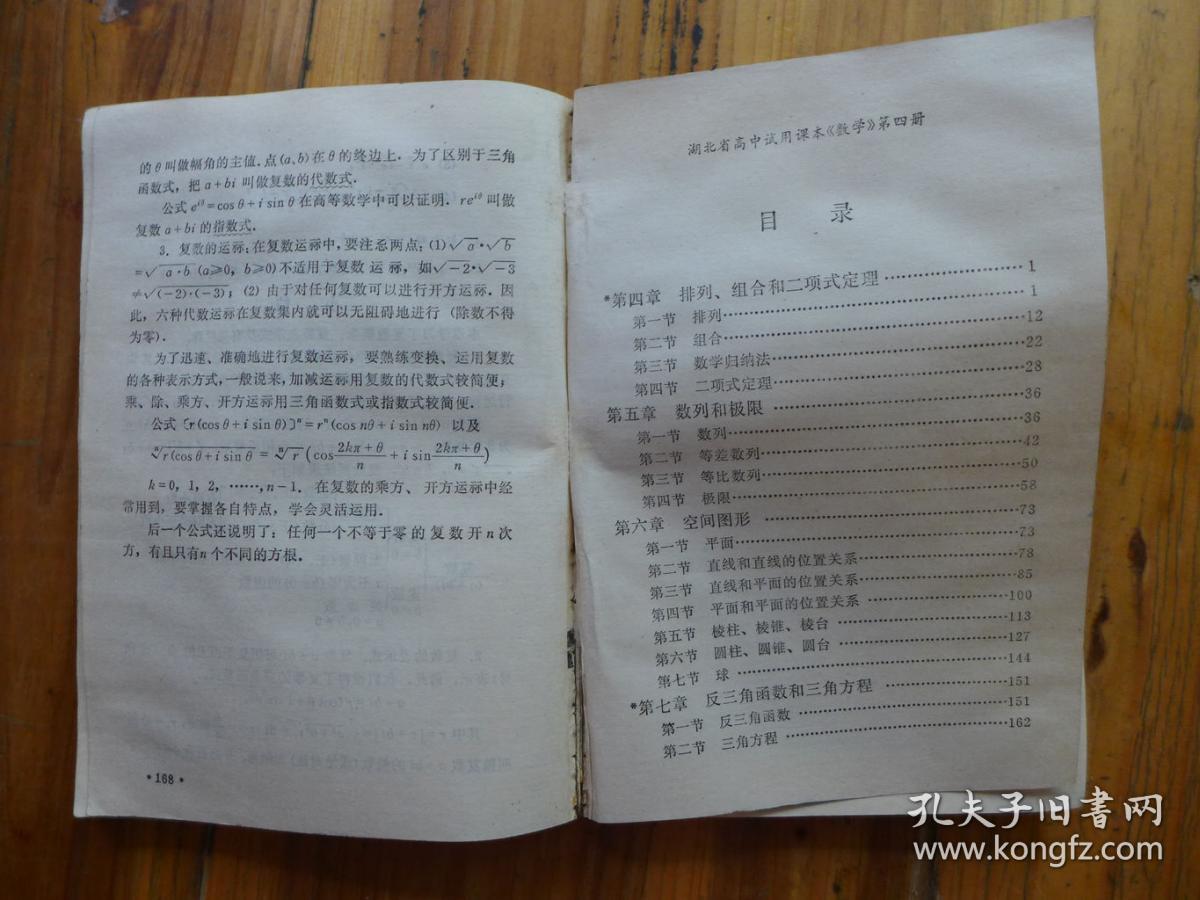 的θ叫做幅角的主值.点(a,b)在θ的终边上.为了区别于三角
函数式,把a+bi叫做复数的代数式.
公式e^{iθ}=cosθ+i sinθ在高等数学中可以证明.re^{iθ}叫做
复数a+bi的指数式.
3.复数的运祘:在复数运祘中,要注忌两点:(1)√a·√b
=√a·b(a⩾0,b⩾0)不适用于复数运祘,如√-2·√-3
≠√(-2)·(-3);(2)由于对任何复数可以进行开方运祘.因
此,六种代数运祘在复数集内就可以无阻碍地进行(除数不得
为零).
为了迅速、准确地进行复数运祘,要熟练变换、运用复数
的各种表示方式,一般说来,加减运祘用复数的代数式较简便;
乘、除、乘方、开方运祘用三角函数式或指数式较简便.
公式〔r(cosθ+i sinθ)〕^n=r^n(cos nθ+i sin nθ)以及
ⁿ√r(cosθ+i sinθ=ⁿ√r(cos (2kπ+θ)/n+i sin (2kπ+θ)/n)
k=0,1,2,……,n-1.在复数的乘方、开方运祘中经
常用到,要掌握各自特点,学会灵活运用.
后一个公式还说明了:任何一个不等于零的复数开n次
方,有且只有n个不同的方根.
·168·
湖北省高中试用课本《数学》第四册
目 录
*第四章 排列、组合和二项式定理……………1
第一节 排列……………1
第二节 组合……………12
第三节 数学归纳法……………22
第四节 二项式定理……………28
第五章 数列和极限……………36
第一节 数列……………36
第二节 等差数列……………42
第三节 等比数列……………50
第四节 极限……………58
第六章 空间图形……………73
第一节 平面……………73
第二节 直线和直线的位置关系……………78
第三节 直线和平面的位置关系……………85
第四节 平面和平面的位置关系……………100
第五节 棱柱、棱锥、棱台……………113
第六节 圆柱、圆锥、圆台……………127
第七节 球……………144
*第七章 反三角函数和三角方程……………151
第一节 反三角函数……………151
第二节 三角方程……………162
孔夫子旧书网
www.kongfz.com